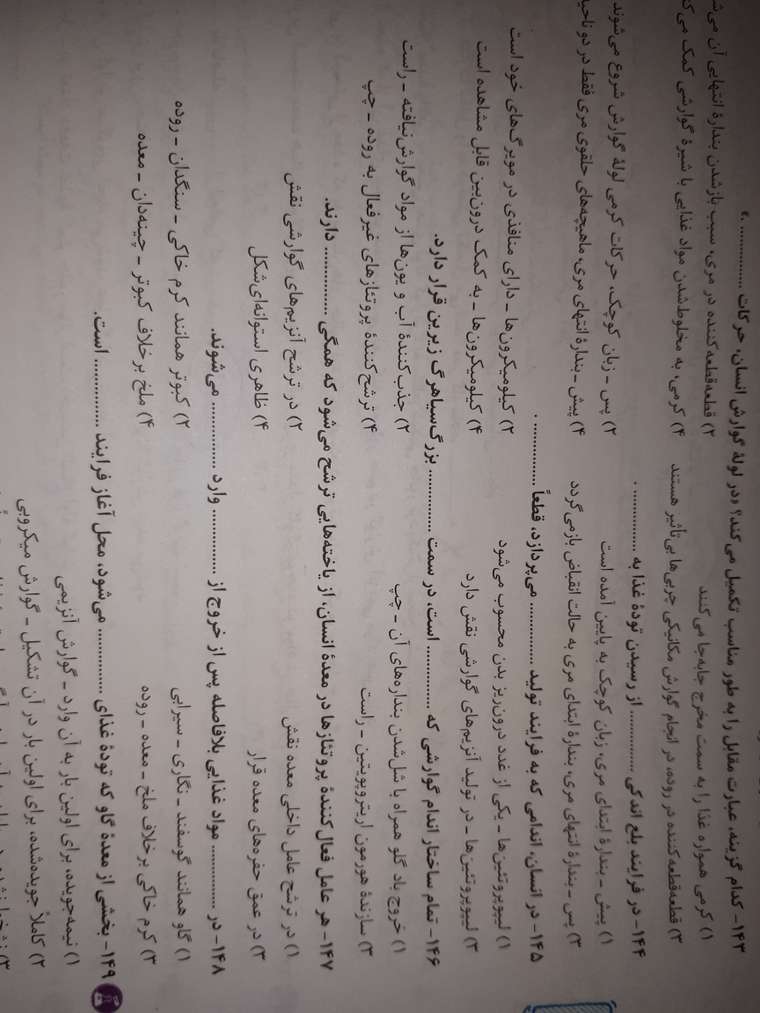 ۱۴۳- کدام گزینه، عبارت مقابل را به طور مناسب تکمیل می‌کند؟ «در لولهٔ گوارش انسان، حرکات .............. .»
۱) کرمی همواره غذا را به سمت مخرج جابه‌جا می‌کنند
۲) قطعه‌قطعه‌کننده در مری، سبب بازشدن بندارهٔ انتهایی آن
۳) قطعه‌قطعه‌کننده در روده، در انجام گوارش مکانیکی چربی‌ها بی‌تأثیر هستند
۴) کرمی، به مخلوط‌شدن مواد غذایی با شیرهٔ گوارشی کمک
۱۴۴- در فرایند بلع اندکی .............. از رسیدن تودهٔ غذا به .............. .
۱) پیش - بندارهٔ ابتدای مری، زبان کوچک به پایین آمده است
۲) پس - زبان کوچک، حرکات کرمی لولهٔ گوارش شروع می‌شوند
۳) پس - بندارهٔ انتهای مری، بندارهٔ ابتدای مری به حالت انقباض بازمی‌گردد
۴) پیش - بندارهٔ انتهای مری، ماهیچه‌های حلقوی مری فقط در دو
۱۴۵- در انسان، اندامی که به فرایند تولید .............. می‌پردازد، قطعاً .............. .
۱) لیپوپروتئین‌ها - یکی از غدد درون‌ریز بدن محسوب می‌شود
۲) کیلومیکرون‌ها - دارای منافذی در مویرگ‌های خود است
۳) لیپوپروتئین‌ها - در تولید آنزیم‌های گوارشی نقش دارد
۴) کیلومیکرون‌ها - به کمک درون‌بین قابل مشاهده است
۱۴۶- تمام ساختار اندام گوارشی که .............. است، در سمت .............. بزرگ‌سیاهرگ زیرین قرار دارد.
۱) خروج باد گلو همراه با شل‌شدن بنداره‌های آن - چپ
۲) جذب‌کنندهٔ آب و یون‌ها از مواد گوارش‌نیافته - راست
۳) سازندهٔ هورمون اریتروپویتین - راست
۴) ترشح‌کنندهٔ پروتئازهای غیرفعال به روده - چپ
۱۴۷- هر عامل فعال‌کنندهٔ پروتئازها در معدهٔ انسان، از یاخته‌هایی ترشح می‌شود که همگی .............. دارند.
۱) در ترشح عامل داخلی معده نقش
۲) در ترشح آنزیم‌های گوارشی نقش
۳) در عمق حفره‌های معده قرار
۴) ظاهری استوانه‌ای‌شکل
۱۴۸- در .............. مواد غذایی بلافاصله پس از خروج از .............. وارد .............. می‌شوند.
۱) گاو همانند گوسفند - نگاری - سیرابی
۲) کبوتر همانند کرم خاکی - سنگدان - روده
۳) کرم خاکی برخلاف ملخ - معده - روده
۴) ملخ برخلاف کبوتر - چینه‌دان - معده
۱۴۹- بخشی از معدهٔ گاو که تودهٔ غذای .............. می‌شود، محل آغاز فرایند .............. است.
۱) نیمه‌جویده، برای اولین بار به آن وارد - گوارش آنزیمی
۲) کاملاً جویده‌شده، برای اولین بار در آن تشکیل - گوارش میکروبی